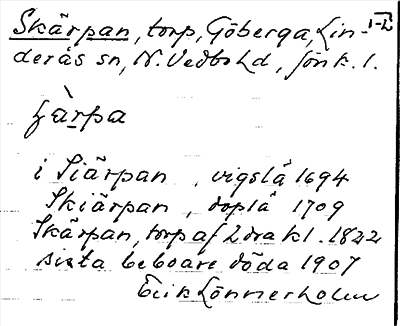 Skärpan, torp, Göberga, Lin-
derås sn, N. Vedbo hd, Jönk. l.
i Siärpan, vigslå 1694
Skiärpan, doplå 1709
Skärpan, torp af 2dra kl. 1822
sista beboare döda 1907
Erik Lönnerholm